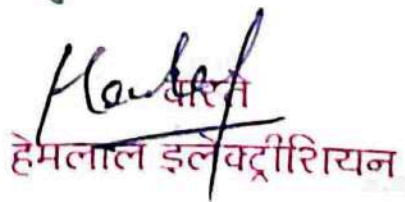 वास्ते
हेमलाल इलेक्ट्रीशियन